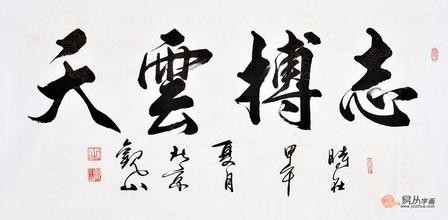 志搏雲天
時在
甲午
夏月
北京
觀山
易从字画